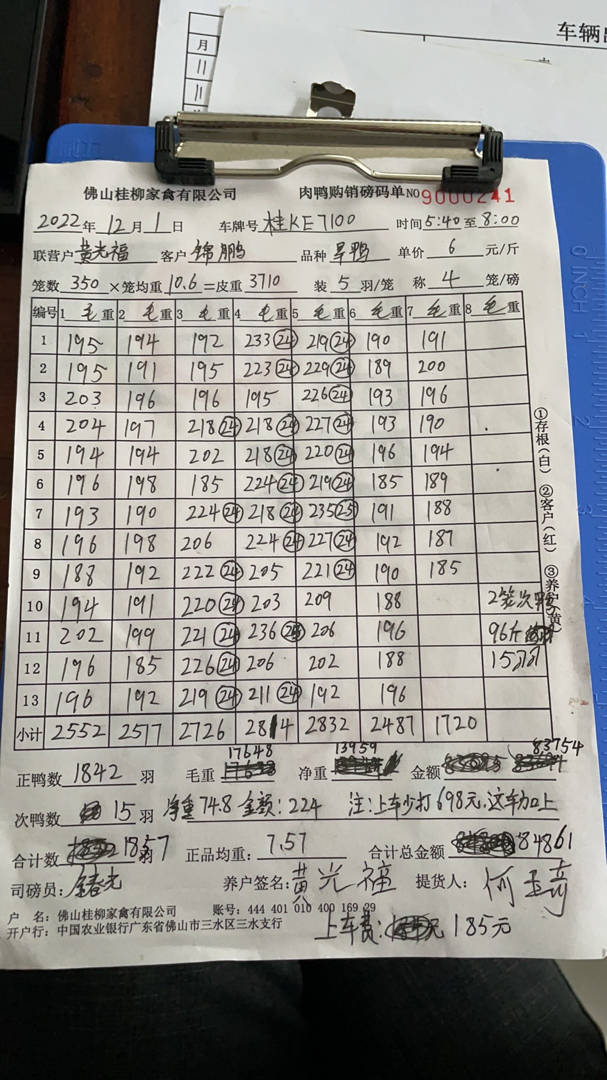 车辆出
月
佛山桂柳家禽有限公司 肉鸭购销磅码单 NO 9000241
2022年 12月 1日 车牌号 桂KE7100 时间 5:40 至 8:00
联营户 黄光福 客户 锦鹏 品种 旱鸭 单价 6 元/斤
笼数 350 ×笼均重 10.6 =皮重 3710 装 5 羽/笼 称 4 笼/磅
编号 1 毛重 2 毛重 3 毛重 4 毛重 5 毛重 6 毛重 7 毛重 8 毛重
1 195 194 192 233 24 219 24 190 191
2 195 191 195 223 24 229 24 189 200
3 203 196 196 195 226 24 193 196
4 204 197 218 24 218 24 227 24 193 190
5 194 194 202 218 24 220 24 196 194
6 196 198 185 224 24 219 24 185 189
7 193 190 224 24 218 24 235 25 191 188
8 196 198 206 224 24 227 24 192 187
9 188 192 222 24 205 221 24 190 185
10 194 191 220 24 203 209 188 2笼次鸭
11 202 199 221 24 236 206 196 96斤
12 196 185 226 24 206 202 188 15羽
13 196 192 219 24 211 24 192 196
小计 2552 2517 2726 2814 2832 2487 1720
①存根(白) ②客户(红) ③养户(黄)
17648 13959 83754
正鸭数 1842 羽 毛重 净重 金额
次鸭数 15 羽 净重 74.8 金额: 224 注:上车少打698元,这车加上
合计数 1857 羽 正品均重: 7.57 合计总金额 84861
司磅员: 养户签名: 黄光福 提货人: 何玉奇
户 名: 佛山桂柳家禽有限公司 账号: 444 401 010 400 169 29
开户行: 中国农业银行广东省佛山市三水区三水支行
上车费: 185元